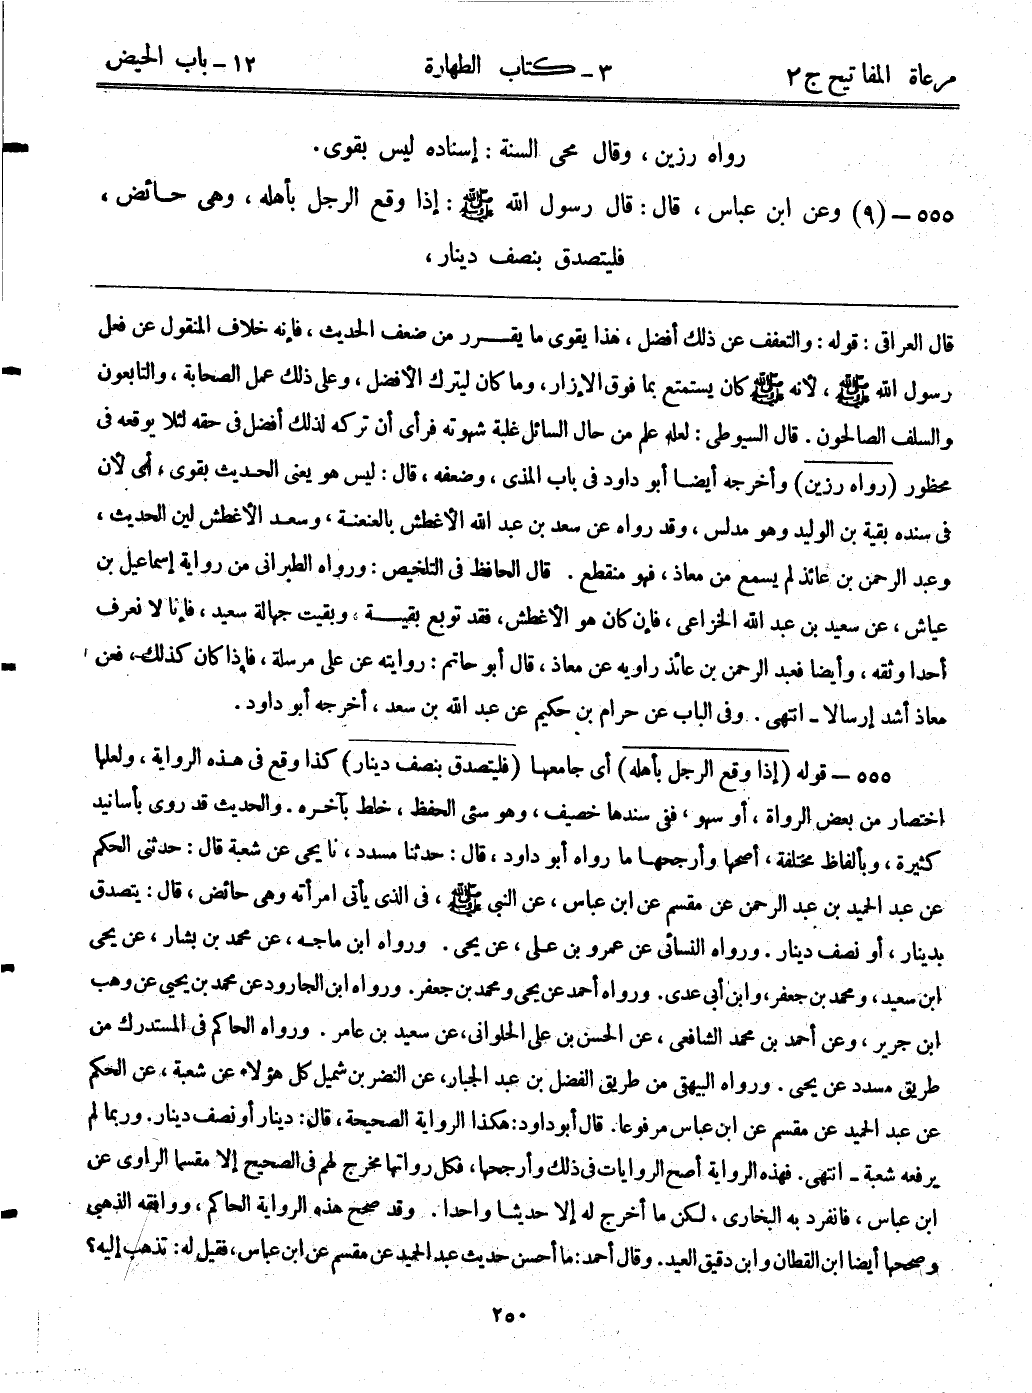 مرعاة المفاتيح ج ٢
٣ - كتاب الطهارة
١٢ - باب الحيض
رواه رزين، وقال محى السنة: إسناده ليس بقوى.
٥٥٥ – (٩) وعن ابن عباس، قال: قال رسول الله ﷺ: إذا وقع الرجل بأهله، وهى حائض،
فليتصدق بنصف دينار،
قال العراقى: قوله: والتعفف عن ذلك أفضل، هذا يقوى ما يقرر من ضعف الحديث، فإنه خلاف المنقول عن فعل
رسول الله ﷺ، لأنه ﷺ كان يستمتع بما فوق الإزار، وما كان ليترك الأفضل، وعلى ذلك عمل الصحابة، والتابعون
والسلف الصالحون. قال السيوطى: لعله علم من حال السائل غلبة شهوته فرأى أن تركه لذلك أفضل فى حقه لئلا يوقعه فى
محظور (رواه رزين) وأخرجه أيضا أبو داود فى باب المذى، وضعفه، قال: ليس هو يعنى الحديث بقوى، أى لأن
فى سنده بقية بن الوليد وهو مدلس، وقد رواه عن سعد بن عبد الله الأغطش بالعنعنة، وسعد الأغطش لين الحديث،
وعبد الرحمن بن عائذ لم يسمع من معاذ، فهو منقطع. قال الحافظ فى التلخيص: ورواه الطبرانى من رواية إسماعيل بن
عياش، عن سعيد بن عبد الله الخزاعى، فإن كان هو الأغطش، فقد توبع بقية، وبقيت جهالة سعيد، فإنا لا نعرف
أحدا وثقه، وأيضا فعبد الرحمن بن عائذ راويه عن معاذ، قال أبو حاتم: روايته عن على مرسلة، فإذا كان كذلك، فعن
معاذ أشد إرسالا - انتهى. وفى الباب عن حرام بن حكيم عن عبد الله بن سعد، أخرجه أبو داود.
٥٥٥ – قوله (إذا وقع الرجل بأهله) أى جامعها (فليتصدق بنصف دينار) كذا وقع فى هذه الرواية، ولعلها
اختصار من بعض الرواة، أو سهو، ففى سندها خصيف، وهو سئى الحفظ، خلط بآخره. والحديث قد روى بأسانيد
كثيرة، وبألفاظ مختلفة، أصحها وأرجحها ما رواه أبو داود، قال: حدثنا مسدد، نا يحى عن شعبة قال: حدثنى الحكم
عن عبد الحميد بن عبد الرحمن عن مقسم عن ابن عباس، عن النبى ﷺ، فى الذى يأتى امرأته وهى حائض، قال: يتصدق
بدينار، أو نصف دينار. ورواه النسائى عن عمرو بن على، عن يحى. ورواه ابن ماجه، عن محمد بن بشار، عن يحى
ابن سعيد، ومحمد بن جعفر، وابن أبى عدى. ورواه أحمد عن يحى ومحمد بن جعفر. ورواه ابن الجارود عن محمد بن يحيى عن وهب
ابن جرير، وعن أحمد بن محمد الشافعى، عن الحسن بن على الحلوانى، عن سعيد بن عامر. ورواه الحاكم فى المستدرك من
طريق مسدد عن يحى. ورواه البيهقى من طريق الفضل بن عبد الجبار، عن النضر بن شميل كل هؤلاء عن شعبة، عن الحكم
عن عبد الحميد عن مقسم عن ابن عباس مرفوعا. قال أبو داود: هكذا الرواية الصحيحة، قال: دينار أو نصف دينار. وربما لم
يرفعه شعبة - انتهى. فهذه الرواية أصح الروايات فى ذلك وأرجحها، فكل رواتها مخرج لهم فى الصحيح إلا مقسما الراوى عن
ابن عباس، فانفرد به البخارى، لكن ما أخرج له إلا حديثا واحدا. وقد صحح هذه الرواية الحاكم، ووافقه الذهبى
وصححها أيضا ابن القطان وابن دقيق العيد. وقال أحمد: ما أحسن حديث عبد الحميد عن مقسم عن ابن عباس، فقيل له: تذهب إليه؟
٢٥٠